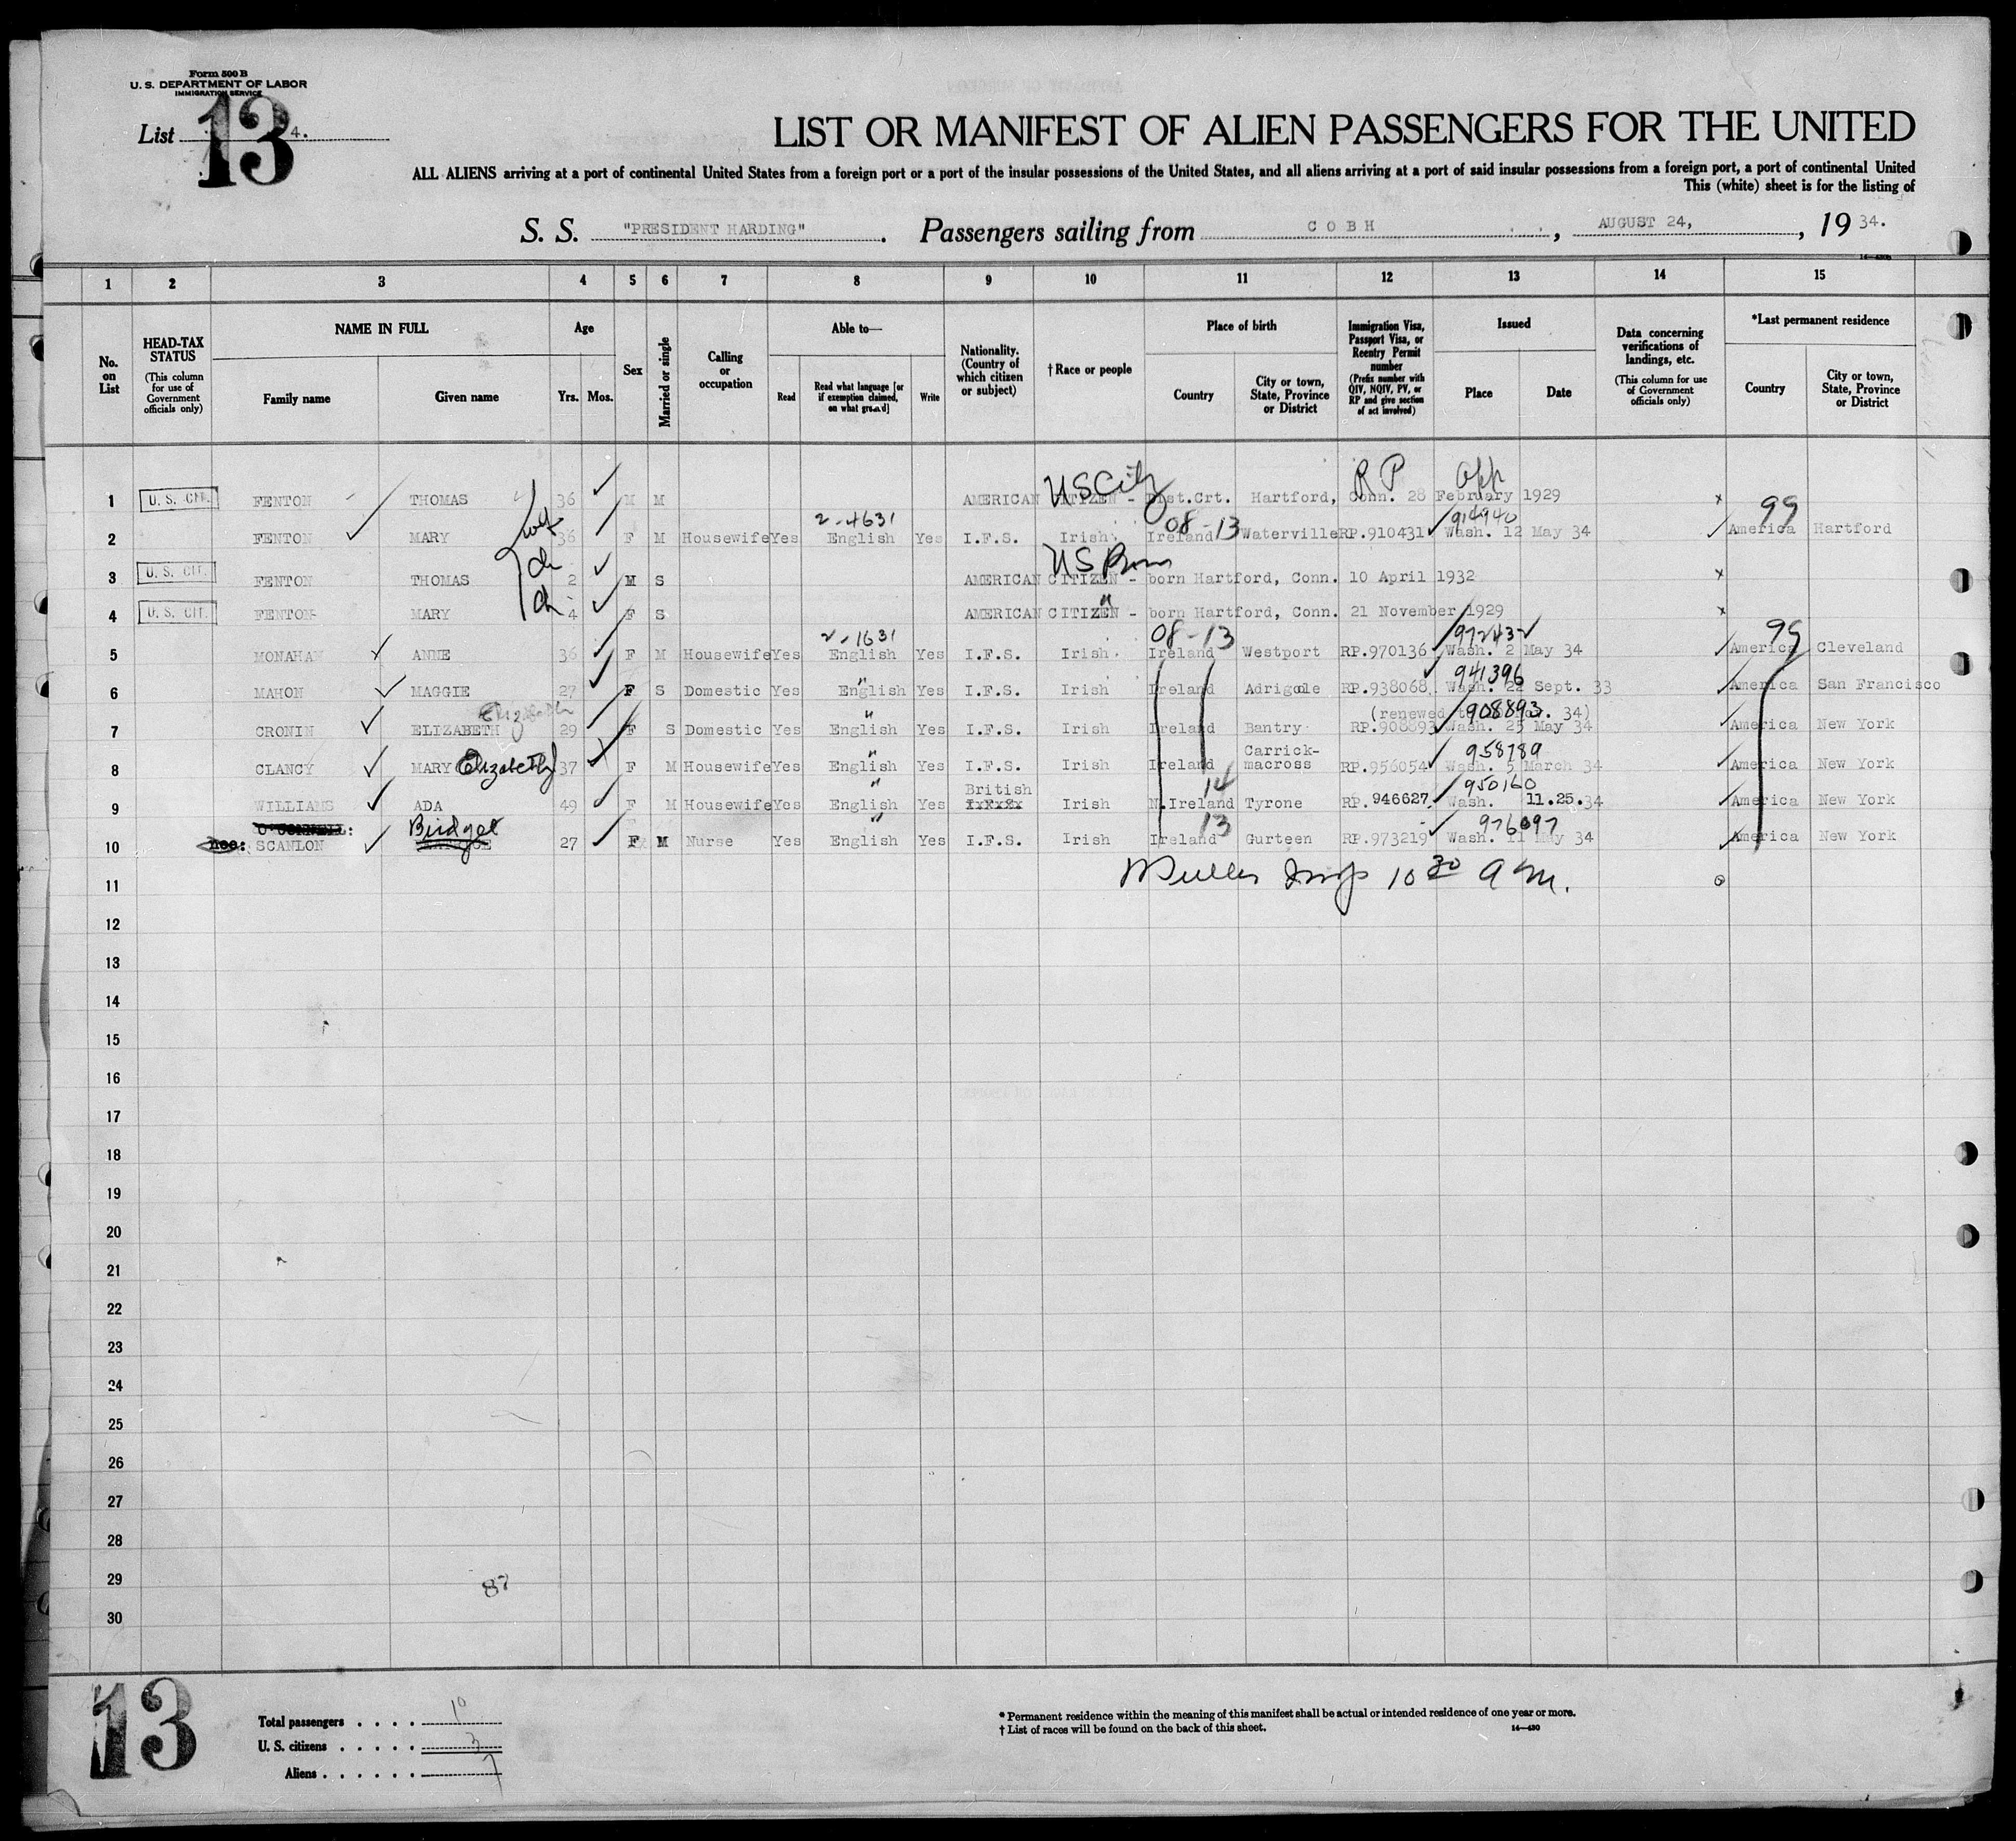 Form 500 B
U. S. DEPARTMENT OF LABOR
IMMIGRATION SERVICE
List 13 4.
LIST OR MANIFEST OF ALIEN PASSENGERS FOR THE UNITED
ALL ALIENS arriving at a port of continental United States from a foreign port or a port of the insular possessions of the United States, and all aliens arriving at a port of said insular possessions from a foreign port, a port of continental United
This (white) sheet is for the listing of
S. S. "PRESIDENT HARDING". Passengers sailing from COBH, AUGUST 24, , 19 34.
14—430b
1 2 3 4 5 6 7 8 9 10 11 12 13 14 15
No. on List
HEAD-TAX STATUS (This column for use of Government officials only)
NAME IN FULL
Family name Given name
Age
Yrs. Mos.
Sex
Married or single
Calling or occupation
Able to—
Read Read what language [or if exemption claimed, on what ground] Write
Nationality. (Country of which citizen or subject)
†Race or people
Place of birth
Country City or town, State, Province or District
Immigration Visa, Passport Visa, or Reentry Permit number (Prefix number with QIV, NQIV, PV, or RP and give section of act involved)
Issued
Place Date
Data concerning verifications of landings, etc. (This column for use of Government officials only)
*Last permanent residence
Country City or town, State, Province or District
US City RP app
1 U. S. CIT. FENTON THOMAS 36 M M AMERICAN CITIZEN - Dist.Crt. Hartford, Conn. 28 February 1929 x
wf 2-4631 08-13 914940 99
2 FENTON MARY 36 F M Housewife Yes English Yes I.F.S. Irish Ireland Waterville RP.910431 Wash. 12 May 34 America Hartford
ch US Born
3 U. S. CIT. FENTON THOMAS 2 M S AMERICAN CITIZEN - born Hartford, Conn. 10 April 1932 x
ch "
4 U. S. CIT. FENTON MARY 4 F S AMERICAN CITIZEN - born Hartford, Conn. 21 November 1929 x
2-1631 08-13 972432 99
5 MONAHAN ANNE 36 F M Housewife Yes English Yes I.F.S. Irish Ireland Westport RP.970136 Wash. 2 May 34 America Cleveland
" 941396
6 MAHON MAGGIE 27 F S Domestic Yes English Yes I.F.S. Irish Ireland Adrigole RP.938068 Wash. 22 Sept. 33 America San Francisco
Elizabeth " (renewed 908893 34)
7 CRONIN ELIZABETH 29 F S Domestic Yes English Yes I.F.S. Irish Ireland Bantry RP.908893 Wash. 25 May 34 America New York
" Carrick- 958789
8 CLANCY MARY Elizabeth 37 F M Housewife Yes English Yes I.F.S. Irish Ireland macross RP.956054 Wash. 5 March 34 America New York
" British 14 950160
9 WILLIAMS ADA 49 F M Housewife Yes English Yes IxFxSx Irish N.Ireland Tyrone RP.946627. Wash. 11.25.34 America New York
O'CONNELL: Bridget " 13 976097
10 nee: SCANLON 27 F M Nurse Yes English Yes I.F.S. Irish Ireland Gurteen RP.973219 Wash. 11 May 34 America New York
11 Muller Insp 10 30 A M.
12
13
14
15
16
17
18
19
20
21
22
23
24
25
26
27
28
29 87
30
13
Total passengers . . . . 10
U. S. citizens . . . . . 3
Aliens . . . . . . 7
* Permanent residence within the meaning of this manifest shall be actual or intended residence of one year or more.
† List of races will be found on the back of this sheet. 14—430